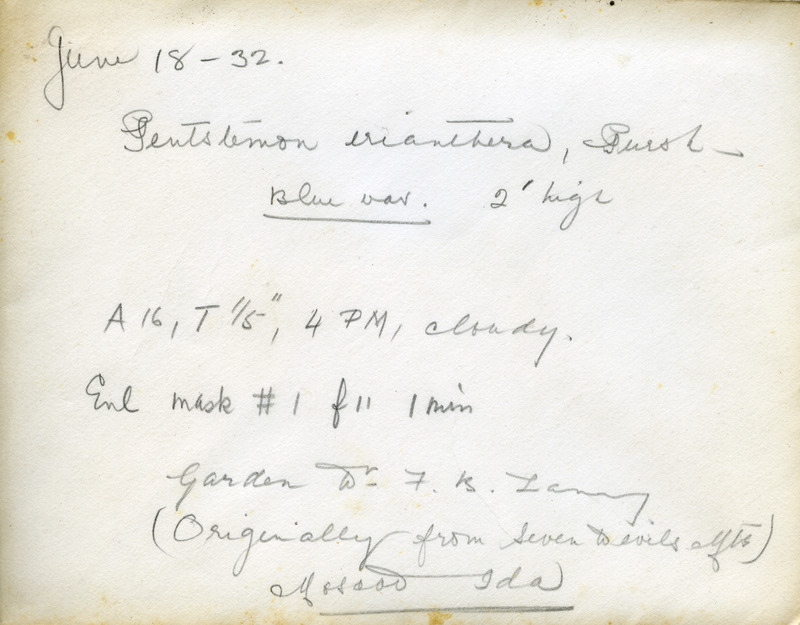 June 18-32.
Pentstemon erianthera, Pursh
Blue var. 2' high
A 16, T 1/5", 4 PM, cloudy.
Enl mask #1 f11 1 min
Garden Dr F. B. Laney
(Originally from Seven Devils Mts)
Moscow Ida